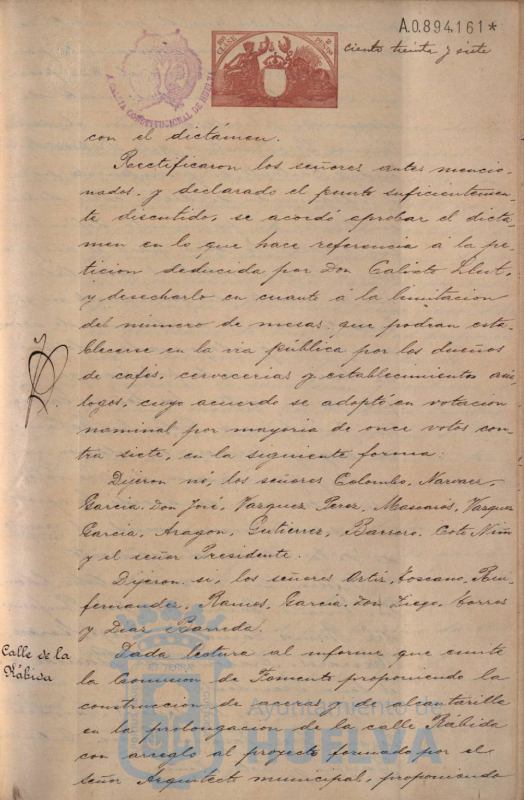 A.0.894.161*
ciento treinta y siete
ALCALDIA CONSTITUCIONAL DE HUELVA
con el dictámen.
Rectificaron los señores antes mencio-
nados, y declarado el punto suficientemen-
te discutido, se acordó aprobar el dicta-
men en lo que hace referencia á la pe-
ticion deducida por Don Calixto
y desecharlo en cuanto á la limitacion
del número de mesas que podran esta-
blecerse en la via pública por los dueños
de cafés, cervecerias y establecimientos aná-
logos, cuyo acuerdo se adoptó en votacion
nominal por mayoria de once votos con-
tra siete, en la siguiente forma:
Dijeron nó, los señores Colombo, Narvaez,
Garcia, Don José, Vazquez Perez, Mascarós, Vazquez
Garcia, Aragon, Gutierrez, Barrero, Coto
y el señor Presidente.
Dijeron, si, los señores Ortiz, Toscano,
fernandez, Ramos, Garcia, Don Diego, Torres
y Diaz
Calle de la
Rábida
Dada lectura al informe que emite
la Comision de Fomento proponiendo la
construccion de aceras y de alcantarilla
en la prolongacion de la calle Rábida
con arreglo al proyecto formado por el
señor Arquitecto municipal, proponiendo
Ayuntamiento de
HUELVA